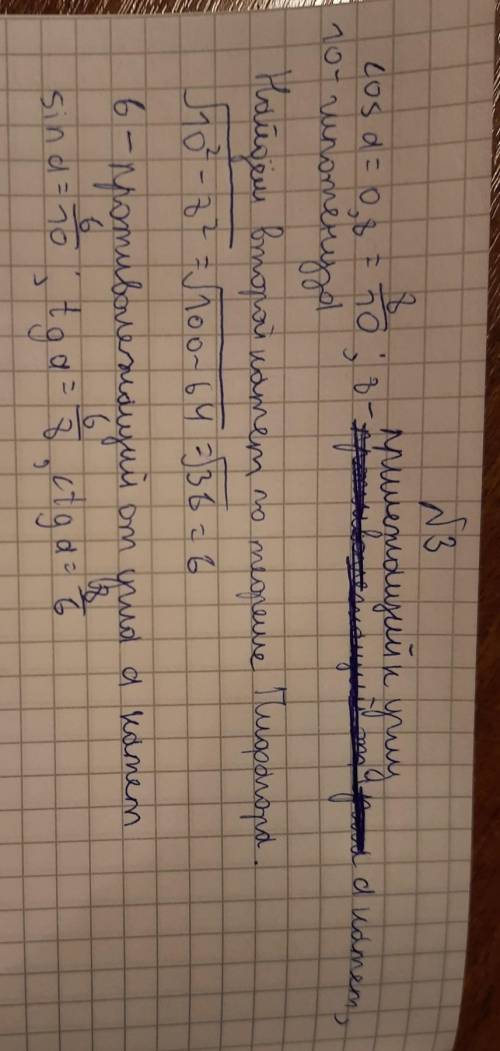 №3
cos α = 0,8 = 8/10; 8 - прилежащий к углу α катет,
10 - гипотенуза
Найдём второй катет по теореме Пифагора.
√10² - 8² = √100 - 64 = √36 = 6
6 - противолежащий от угла α катет
sin α = 6/10; tg α = 6/8, ctg α = 8/6